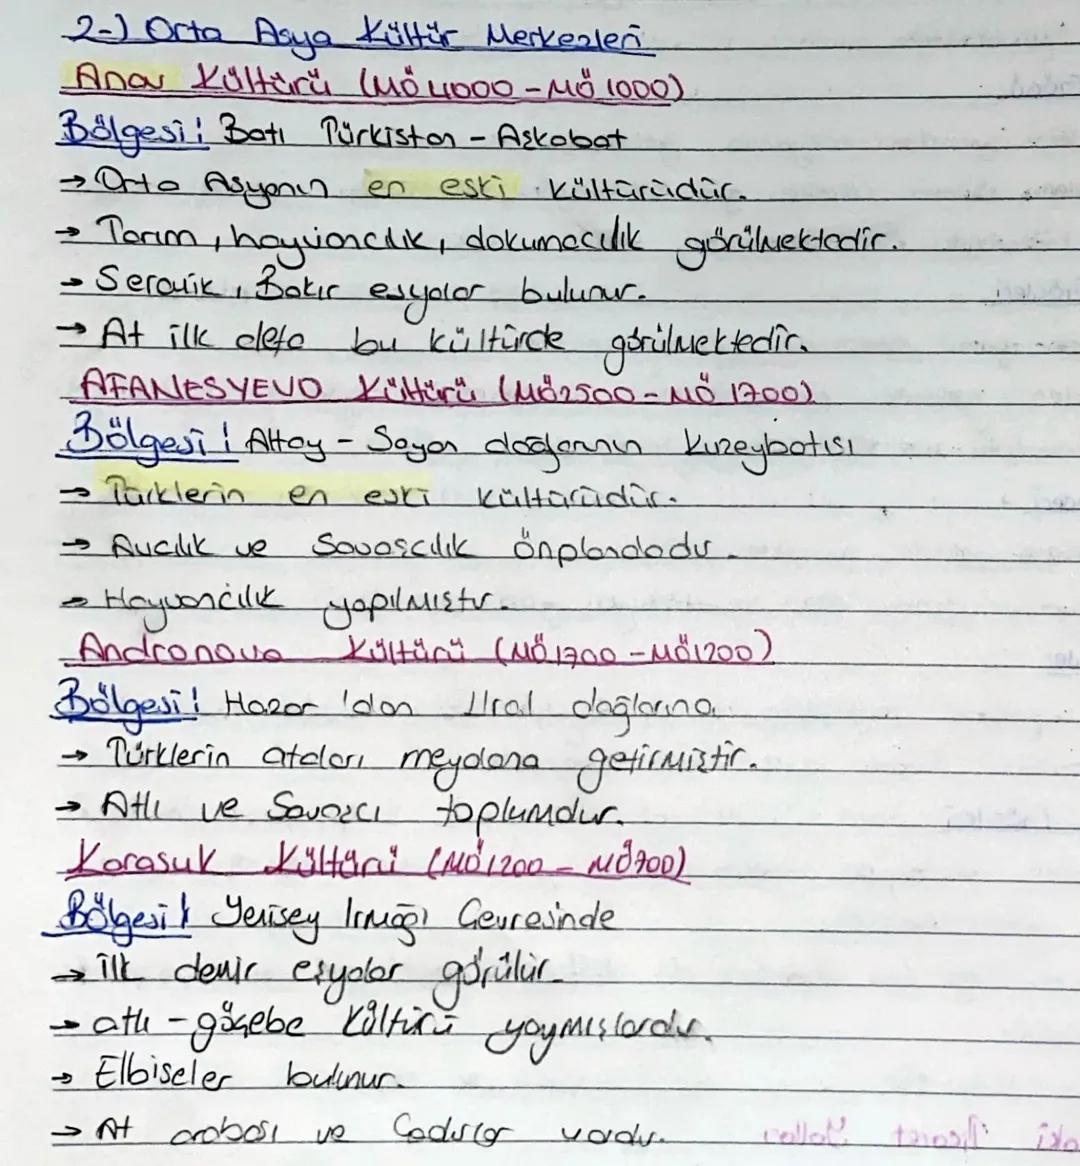 2-) Orta Asya Kültür Merkezleri
Anav Kültürü (MÖ 4000 - MÖ 1000)
Bölgesi: Batı Türkistan - Aşkobat
→ Orta Asyanın en eski kültürüdür.
→ Tarım, hayvancılık, dokumacılık görülmektedir.
→ Seramik, Bakır eşyalar bulunur.
→ At ilk defa bu kültürde görülmektedir.
AFANESYEVO Kültürü (MÖ2500 - MÖ 1700)
Bölgesi: Altay - Sayan dağlarının Kuzeybatısı
→ Türklerin en eski kültürüdür.
→ Avcılık ve Savaşcılık önplandadır.
→ Hayvancılık yapılmıştır.
Andronova Kültürü (MÖ1700 - MÖ1200)
Bölgesi: Hazar'dan Ural dağlarına
→ Türklerin ataları meydana getirmiştir.
→ Atlı ve Savaşcı toplumdur.
Karasuk Kültürü (MÖ1200 - MÖ700)
Bölgesi: Yenisey Irmağı Çevresinde
→ ilk demir eşyalar görülür.
→ atlı - göçebe kültürü yaymışlardır.
→ Elbiseler bulunur.
→ At arabası ve Çadırlar vardır.